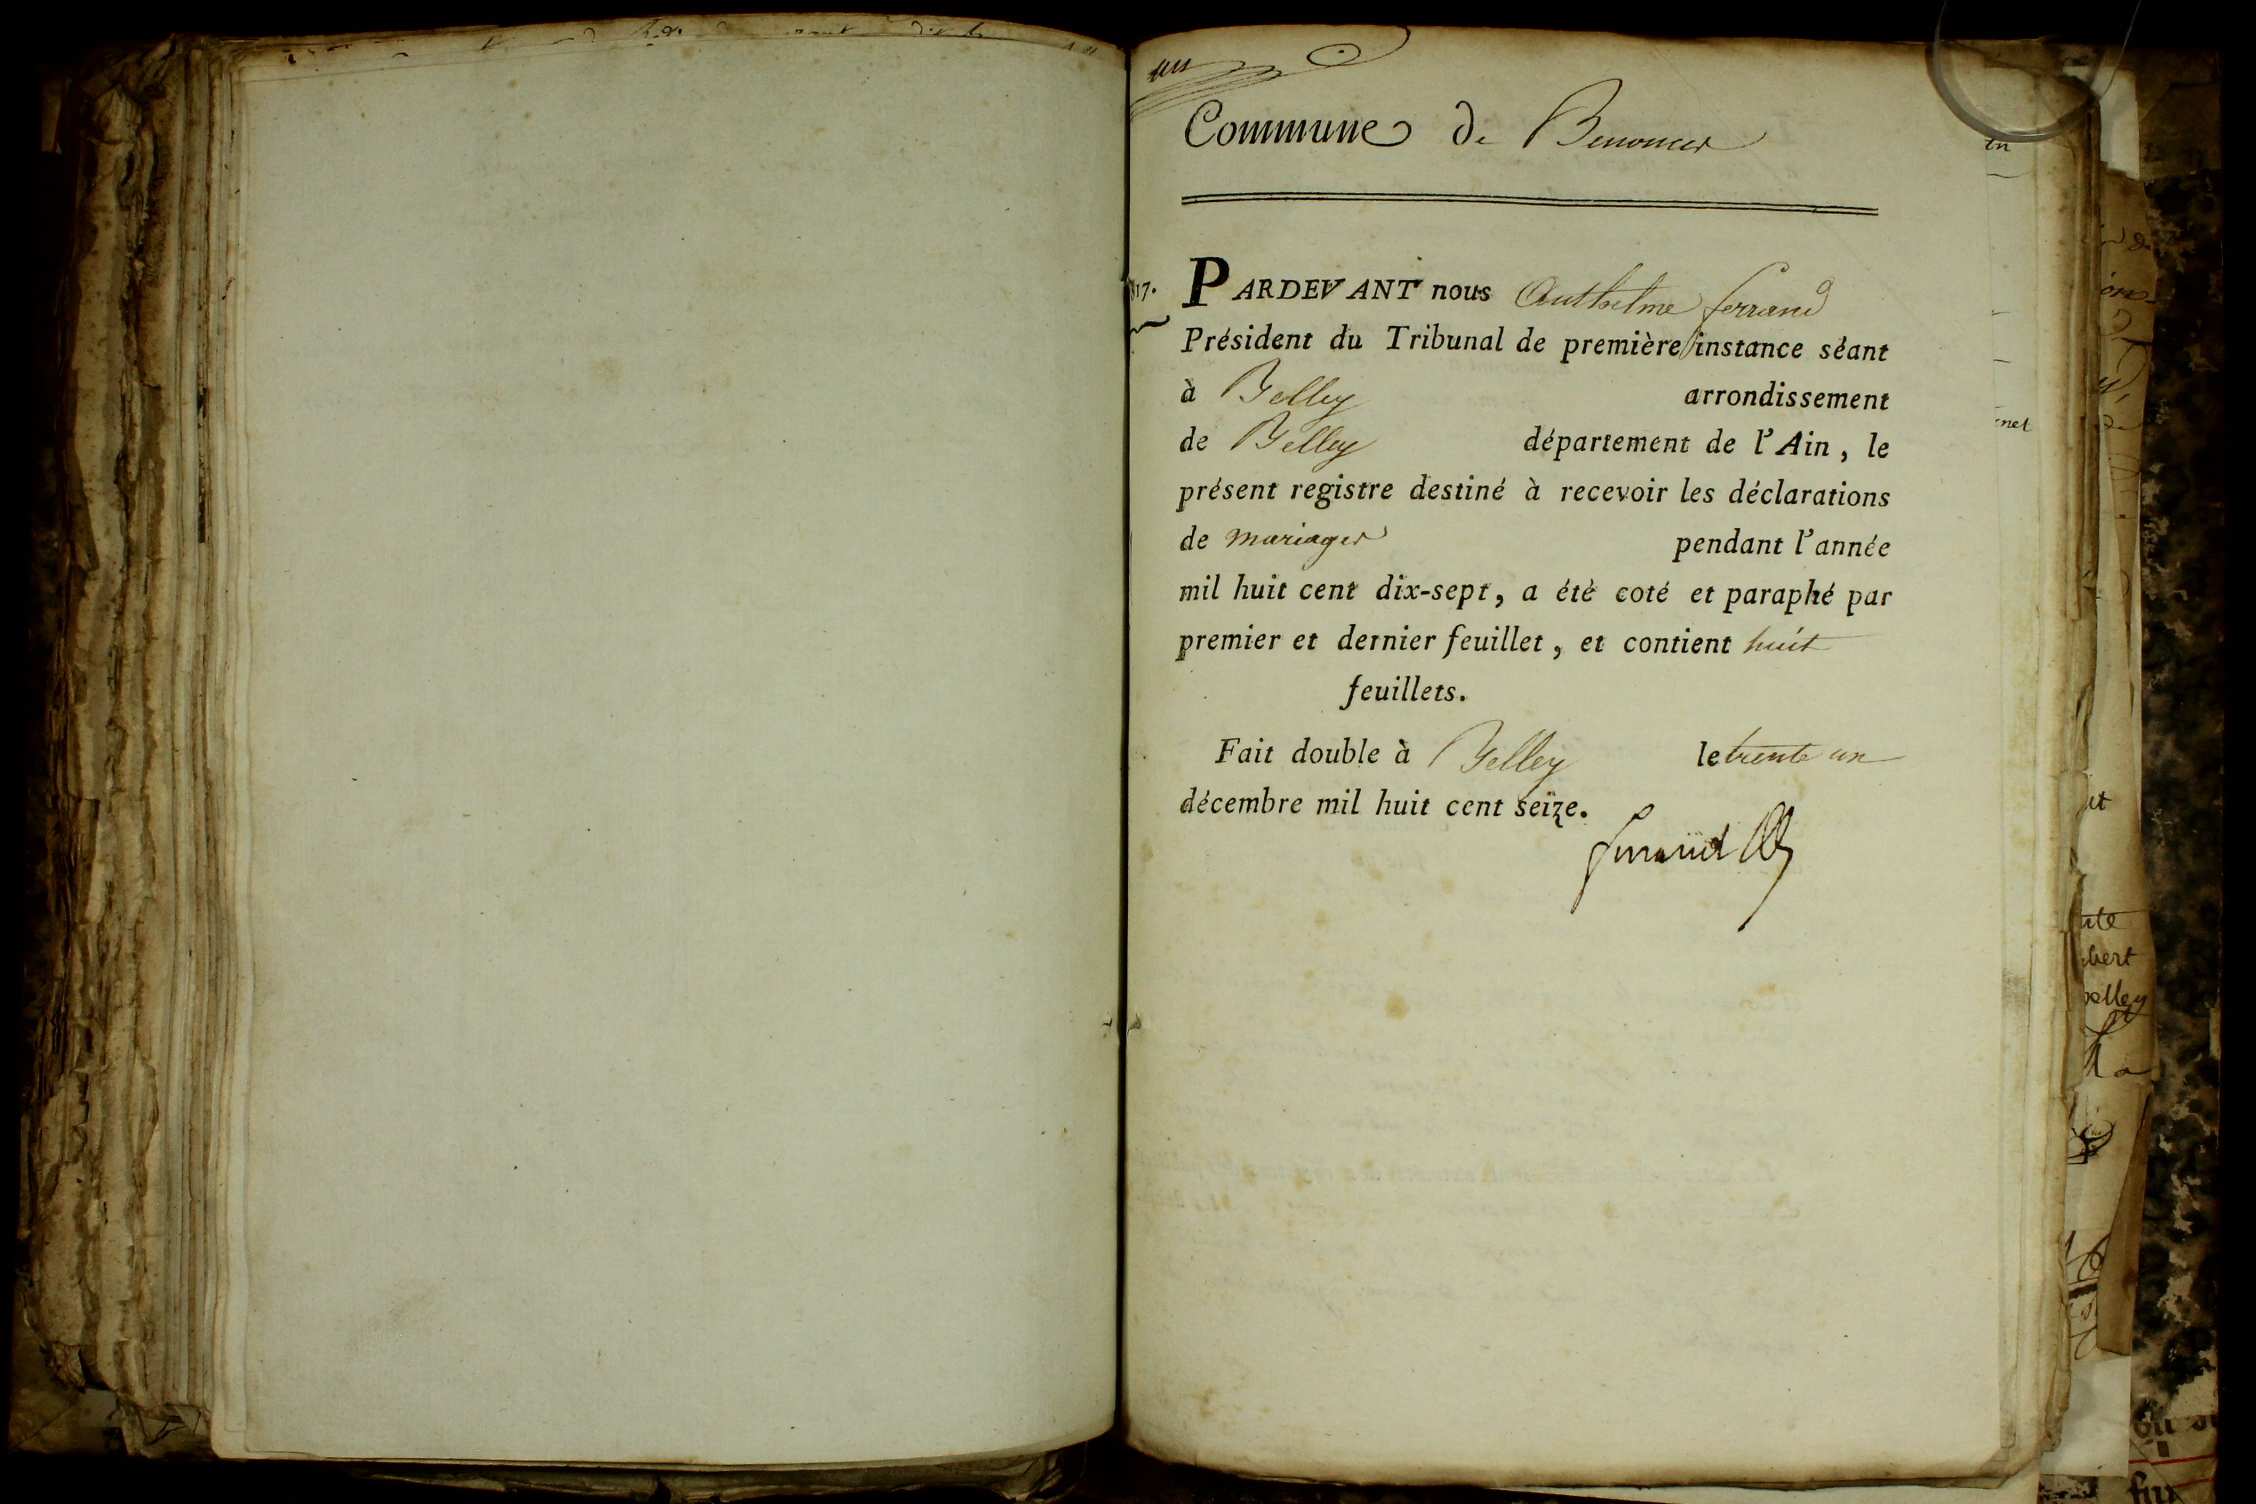 un
Commune de Benonces
1817.
PARDEVANT nous Anthelme ferrand
Président du Tribunal de première instance séant
à Belley arrondissement
de Belley département de l'Ain, le
présent registre destiné à recevoir les déclarations
de mariages pendant l'année
mil huit cent dix-sept, a été coté et paraphé par
premier et dernier feuillet, et contient huit
feuillets.
Fait double à Belley le trente un
décembre mil huit cent seize.
ferrand